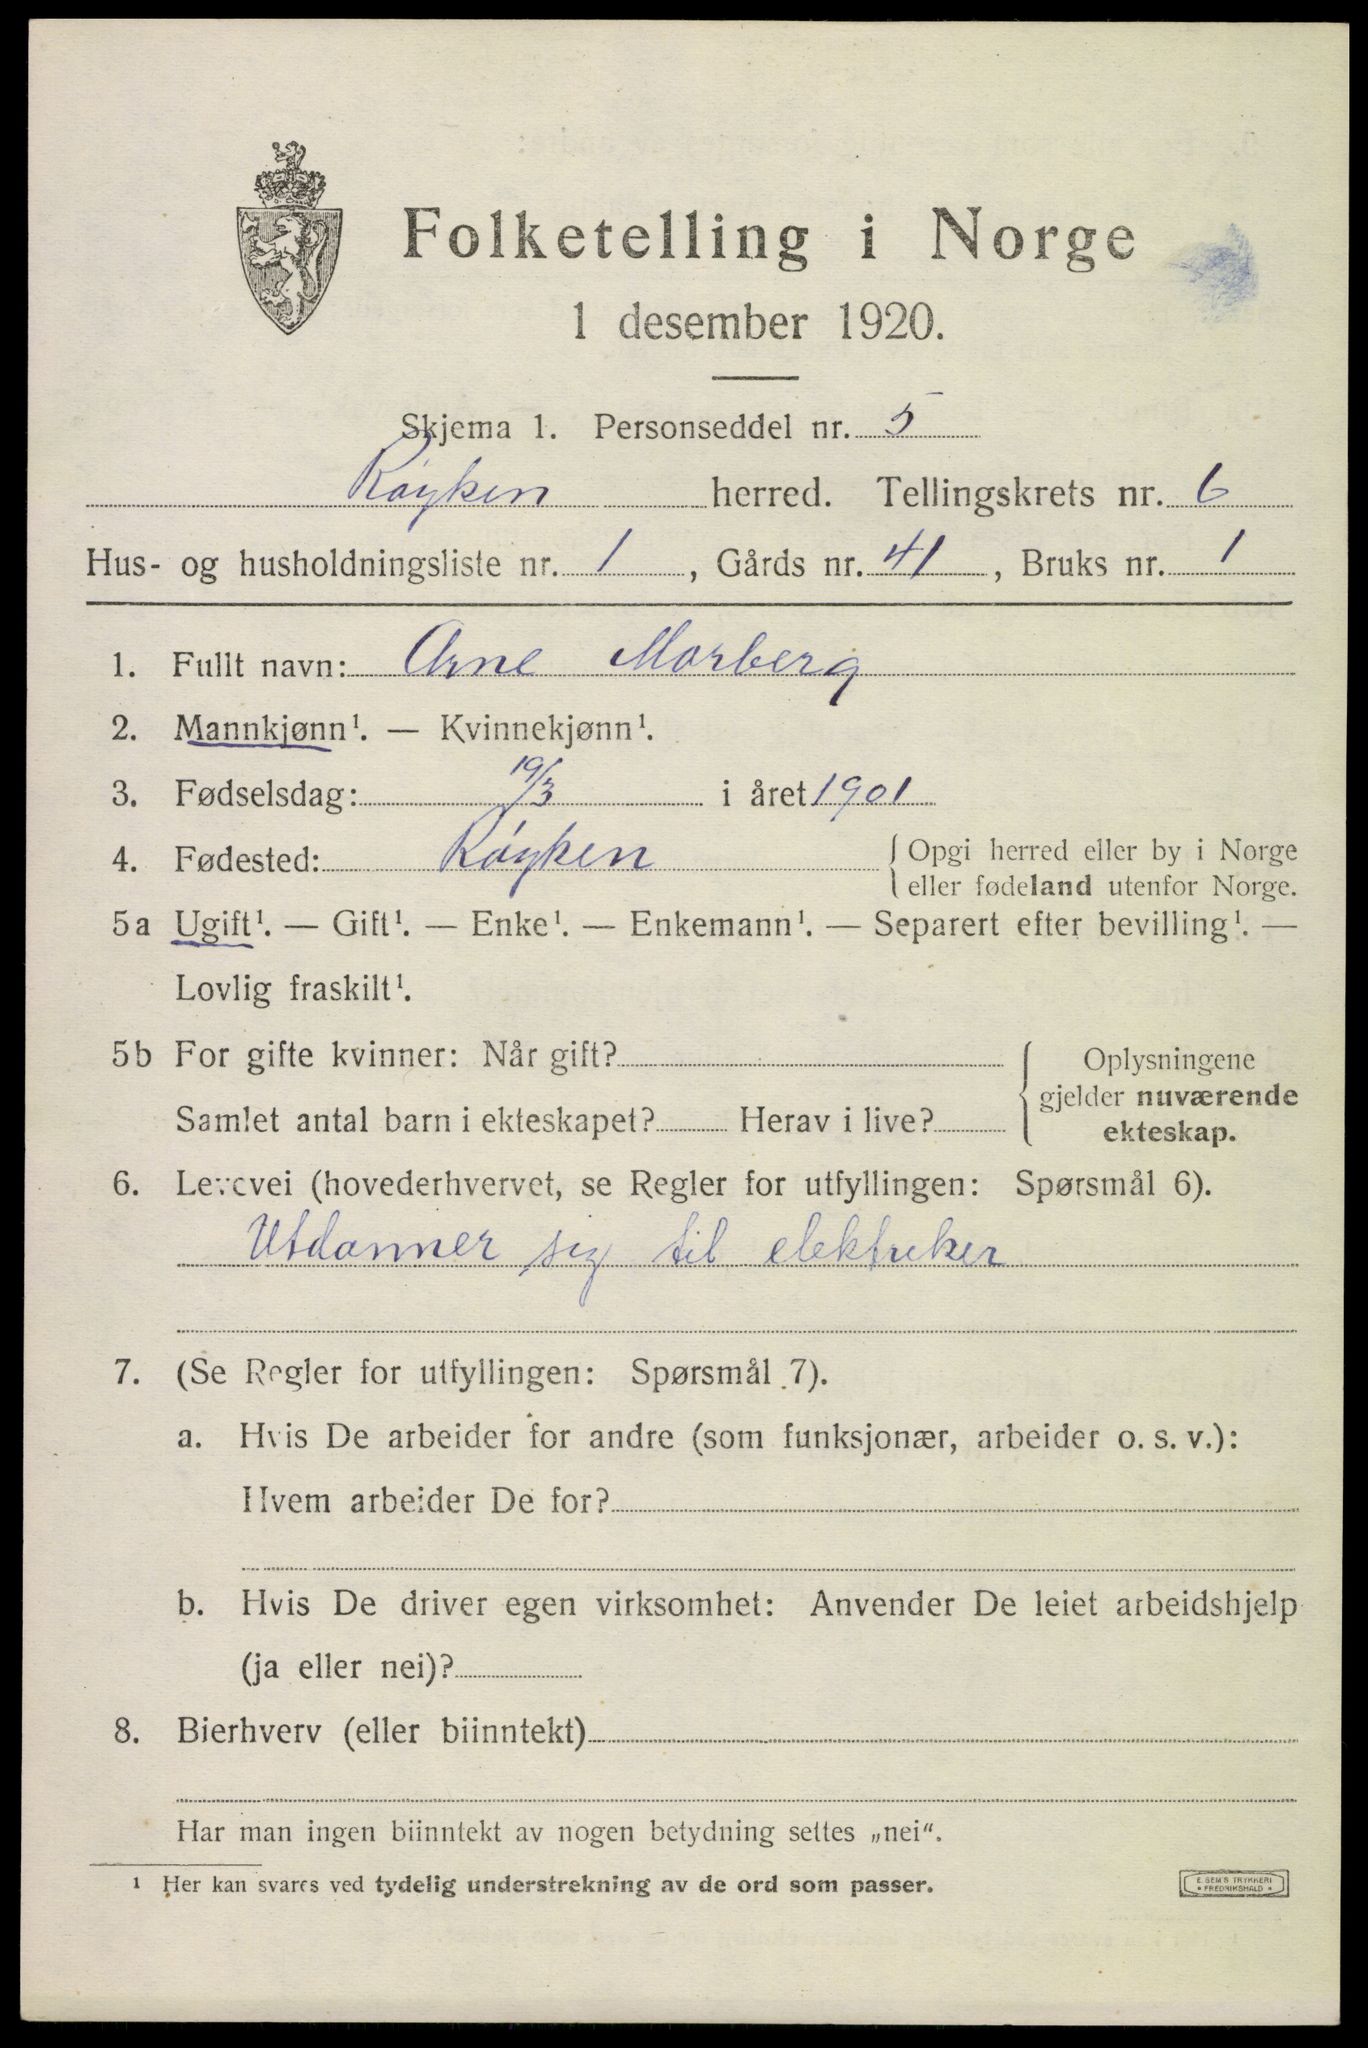 Folketelling i Norge
1 desember 1920.
Skjema 1. Personseddel nr. 5
Røyken herred. Tellingskrets nr. 6
Hus- og husholdningsliste nr. 1, Gårds nr. 41, Bruks nr. 1
1. Fullt navn: Arne Morberg
2. Mannkjønn¹. — Kvinnekjønn¹.
3. Fødselsdag: 19/3 i året 1901
4. Fødested: Røyken { Opgi herred eller by i Norge
eller fødeland utenfor Norge.
5a Ugift¹. — Gift¹. — Enke¹. — Enkemann¹. — Separert efter bevilling¹. —
Lovlig fraskilt¹.
5b For gifte kvinner: Når gift?
Samlet antal barn i ekteskapet? Herav i live?
Oplysningene
gjelder nuværende
ekteskap.
6. Levevei (hovederhvervet, se Regler for utfyllingen: Spørsmål 6).
Utdanner sig til elektriker
7. (Se Regler for utfyllingen: Spørsmål 7).
a. Hvis De arbeider for andre (som funksjonær, arbeider o. s. v.):
Hvem arbeider De for?
b. Hvis De driver egen virksomhet: Anvender De leiet arbeidshjelp
(ja eller nei)?
8. Bierhverv (eller biinntekt)
Har man ingen biinntekt av nogen betydning settes „nei“.
¹ Her kan svares ved tydelig understrekning av de ord som passer.
E. SEM'S TRYKKERI
• FREDRIKSHALD •